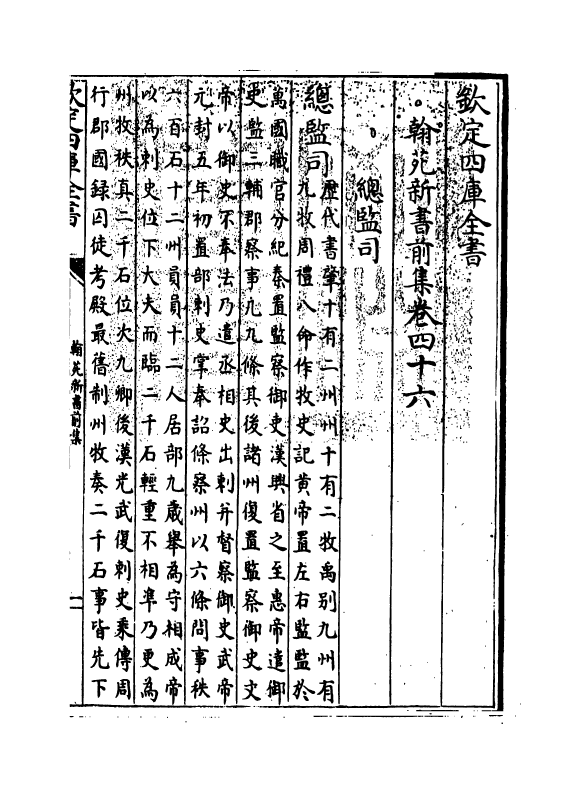 欽定四庫全書
翰苑新書前集卷四十六
總監司
總監司
歷代書肇十有二州州十有二牧禹別九州有
九牧周禮八命作牧史記黄帝置左右監監於
萬國職官分紀秦置監察御史漢興省之至惠帝遣御
史監三輔郡察事凡九條其後諸州復置監察御史文
帝以御史不奉法乃遣丞相史出刺并督察御史武帝
元封五年初置部刺史掌奉詔條察州以六條問事秩
六百石十二州員員十二人居部九歲舉為守相成帝
以為刺史位下大夫而臨二千石輕重不相準乃更為
州牧秩真二千石位次九卿後漢光武復刺史乘傳周
行郡國録囚徒考殿最舊制州牧奏二千石事皆先下
欽定四庫全書
翰苑新書前集
一